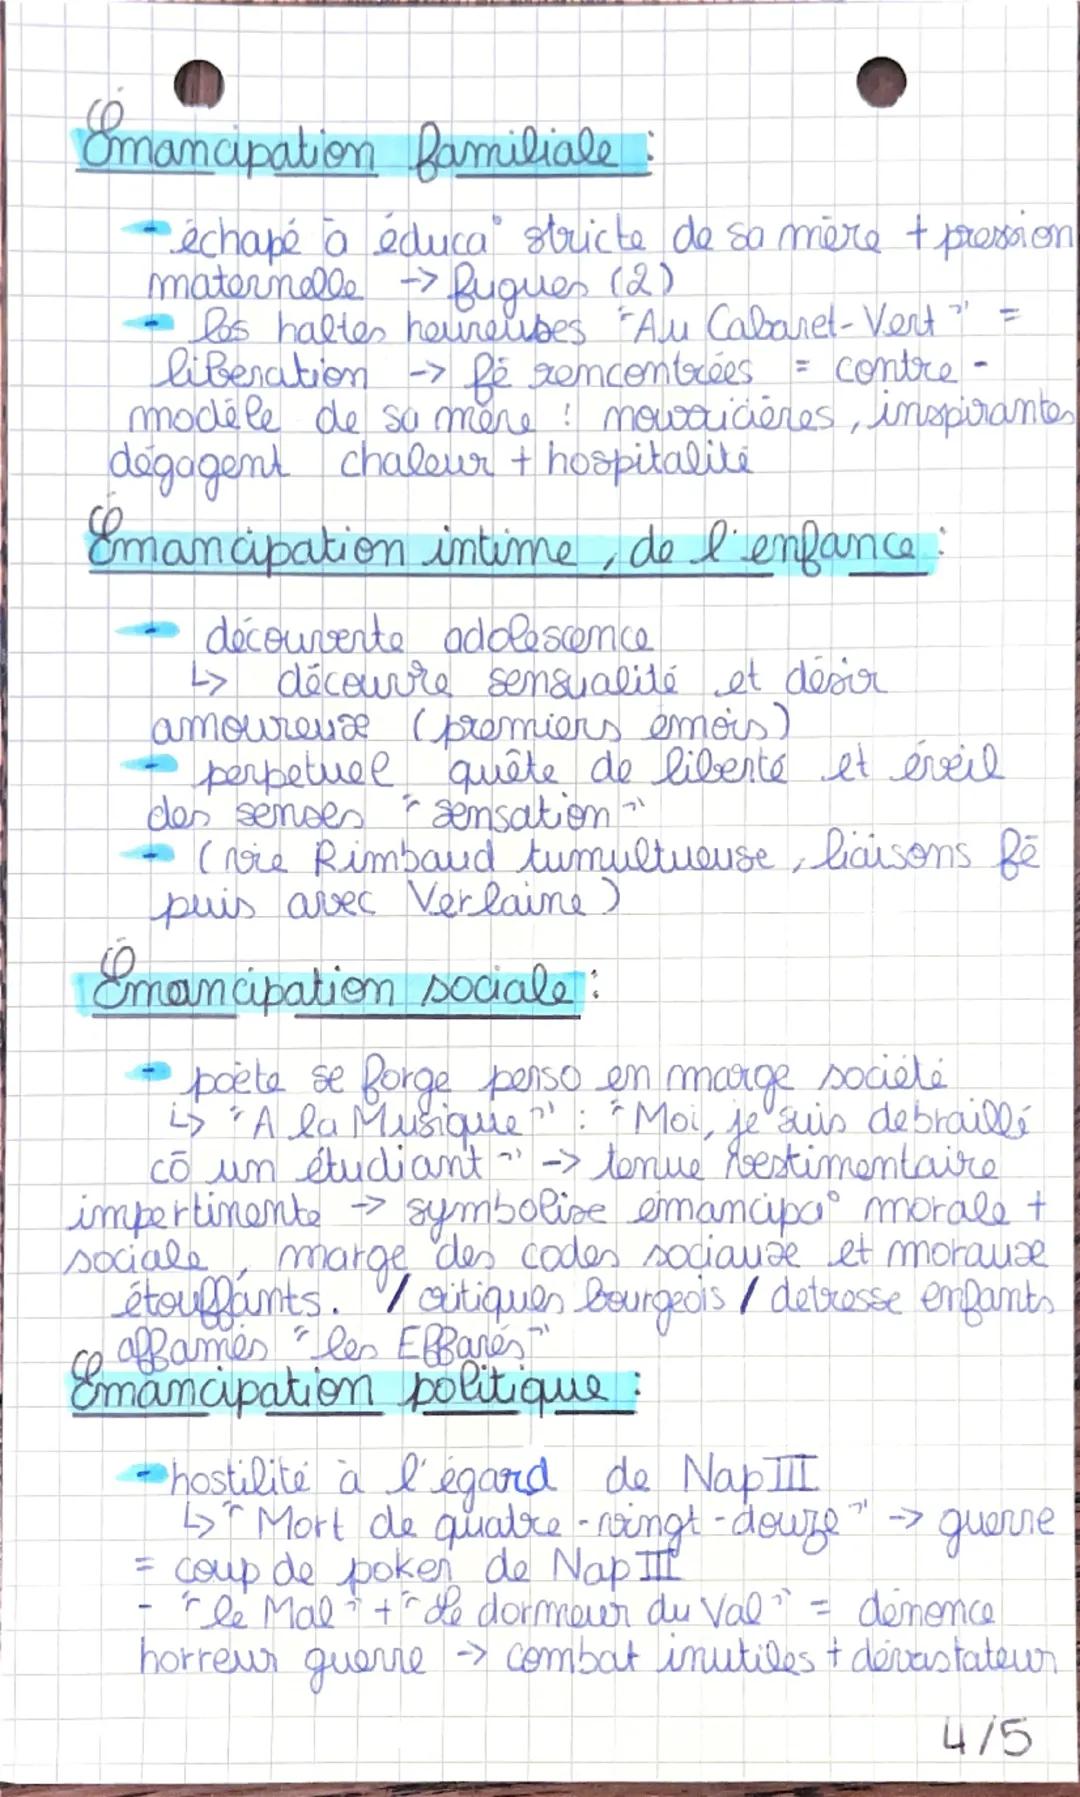 Émancipation familiale :
- échapé à éduca° stricte de sa mère + pression
maternelle -> fugues (2)
- les haltes heureuses "Au Cabaret-Vert" =
libération -> fē rencontrées = contre-
modèle de sa mère : nourricières, inspirantes
dégagent chaleur + hospitalité
Émancipation intime, de l'enfance :
- découverte adolescence
↳ découvre sensualité et désir
amoureux (premiers émois)
- perpetuel quête de liberté et éveil
des senses "sensation"
- (vie Rimbaud tumultueuse, liaisons fē
puis avec Verlaine)
Émancipation sociale :
- poète se forge perso en marge société
↳ "A la Musique" : "Moi, je suis debraillé
cō un étudiant" -> tenue vestimentaire
impertinente -> symbolise émancipa° morale +
sociale, marge des codes sociaux et moraux
étouffants. / critiques bourgeois / detresse enfants
affamés "les Effarés"
Émancipation politique :
- hostilité à l'égard de Nap III
↳ "Mort de quatre-vingt-douze" -> guerre
= coup de poker de Nap III
- "le Mal" + "Le dormeur du Val" = dénonce
horreur guerre -> combat inutiles + dévastateur
4/5